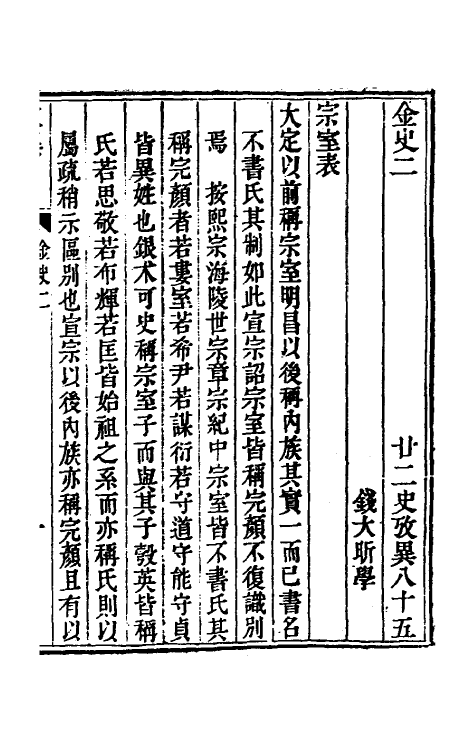 金史二　廿二史攷異八十五
錢大昕學
宗室表
大定以前稱宗室明昌以後稱內族其實一而已書名
不書氏其制如此宣宗詔宗室皆稱完顏不復識別
焉　按熙宗海陵世宗章宗紀中宗室皆不書氏其
稱完顏者若婁室若希尹若謀衍若守道守能守貞
皆異姓也銀术可史稱宗室子而與其子彀英皆稱
氏若思敬若布輝若匡皆始祖之系而亦稱氏則以
屬疏稍示區別也宣宗以後內族亦稱完顏且有以
金史二
一